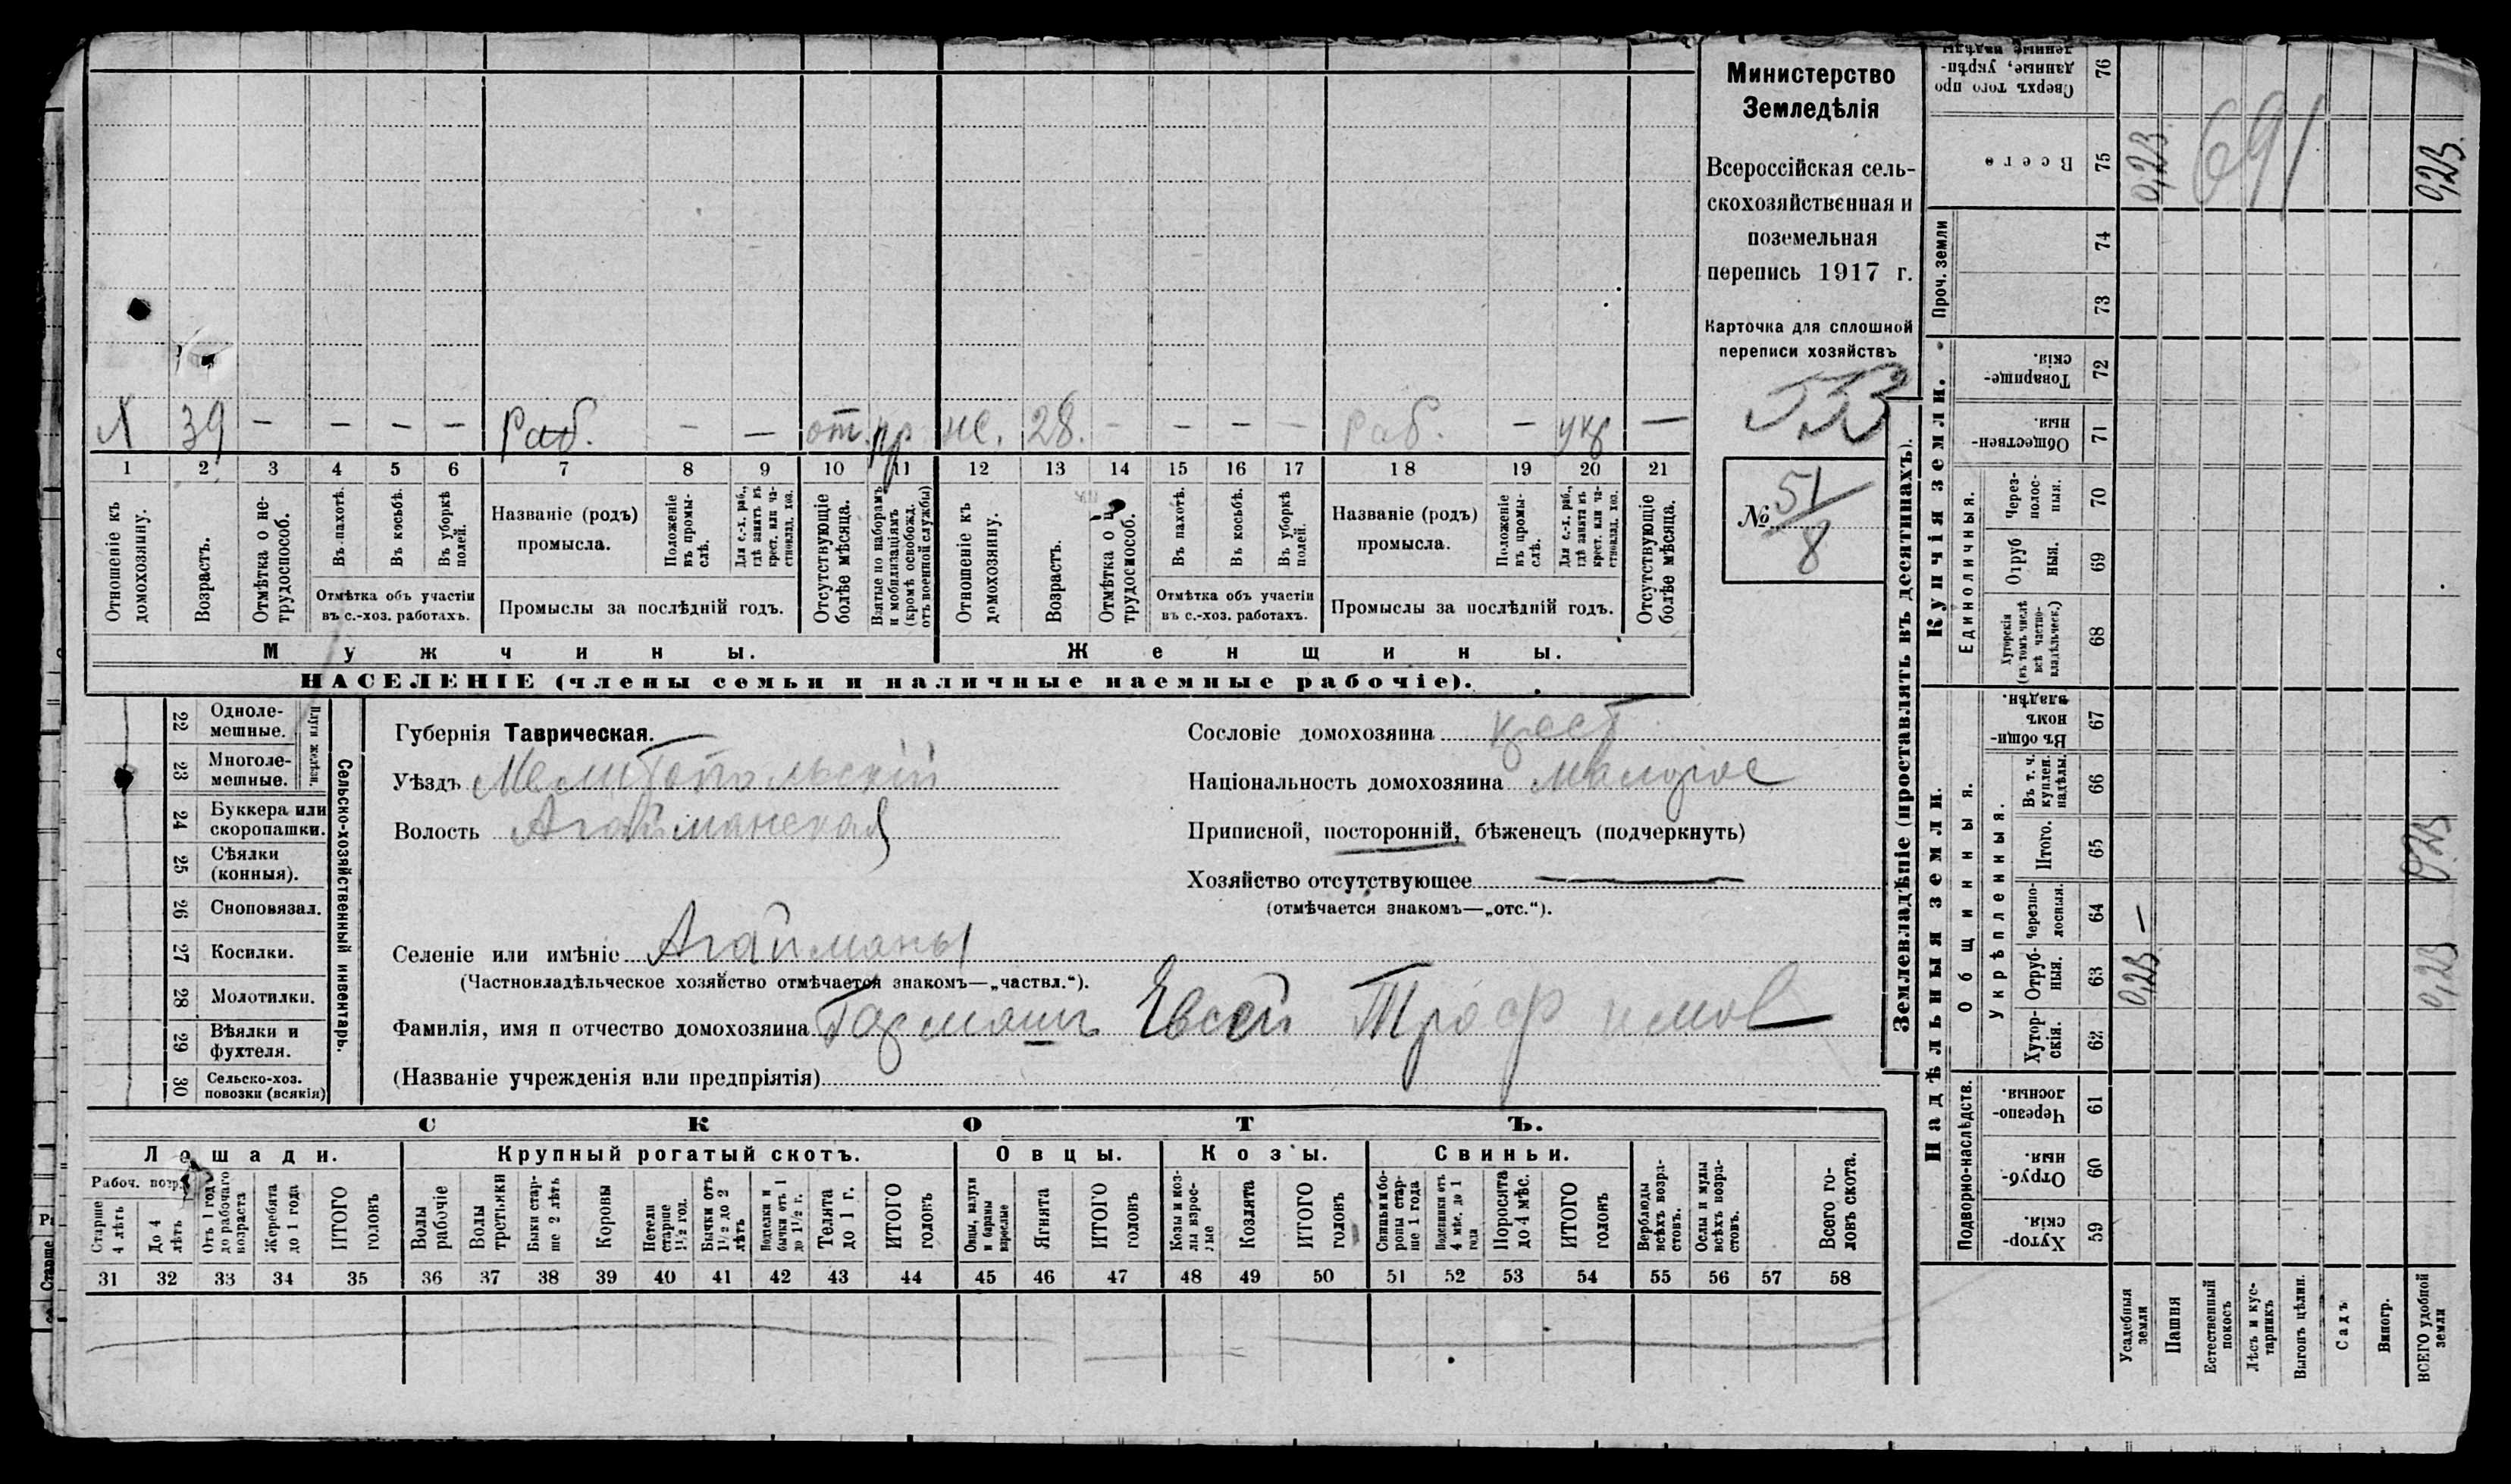 Министерство
Земледѣлія
Всероссійская сель-
скохозяйственная и
поземельная
перепись 1917 г.
Карточка для сплошной
переписи хозяйствъ
№ 51/8
Х 39 — — — — раб. — — от. пр
жс. 28. — — — — раб. — укр —
1 2 3 4 5 6 7 8 9 10 11 12 13 14 15 16 17 18 19 20 21
Отношеніе къ домохозяину.
Возрастъ.
Отмѣтка о не-трудоспособ.
Въ пахотѣ.
Въ косьбѣ.
Въ уборкѣ полей.
Отмѣтка объ участіи
въ с.-хоз. работахъ.
Названіе (родъ)
промысла.
Положеніе въ промы-слѣ.
Для с.-х. раб., гдѣ занятъ въ крест. или ча-стновлад. хоз.
Промыслы за послѣдній годъ.
Отсутствующіе болѣе мѣсяца.
Взятые по наборамъ и мобилизаціямъ (кромѣ освобожд. отъ военной службы)
Отношеніе къ домохозяину.
Возрастъ.
Отмѣтка о
трудоспособ.
Въ пахотѣ.
Въ косьбѣ.
Въ уборкѣ полей.
Отмѣтка объ участіи
въ с.-хоз. работахъ.
Названіе (родъ)
промысла.
Положеніе въ промы-слѣ.
Для с.-х. раб., гдѣ занята въ крест. или ча-стновлад. хоз.
Промыслы за послѣдній годъ.
Отсутствующіе болѣе мѣсяца.
Мужчины.
Женщины.
НАСЕЛЕНІЕ (члены семьи и наличные наемные рабочіе).
22 Одноле-мешные.
23 Многоле-мешные.
Плуги желѣзн.
24 Буккера или скоропашки.
25 Сѣялки (конныя).
26 Сноповязал.
27 Косилки.
28 Молотилки.
29 Вѣялки и фухтеля.
30 Сельско-хоз. повозки (всякія)
Сельско-хозяйственный инвентарь.
Губернія Таврическая.
Уѣздъ Мелитопольскій
Волость Агайманская
Сословіе домохозяина крест
Національность домохозяина малорос
Приписной, посторонній, бѣженецъ (подчеркнуть)
Хозяйство отсутствующее —
(отмѣчается знакомъ—„отс.“).
Селеніе или имѣніе Агайманы
(Частновладѣльческое хозяйство отмѣчается знакомъ—„частвл.“).
Фамилія, имя и отчество домохозяина Гармашъ Евсей Трофимов
(Названіе учрежденія или предпріятія)
СКОТЪ.
Лошади. Крупный рогатый скотъ. Овцы. Козы. Свиньи.
Рабоч. возр.
Старше 4 лѣтъ
До 4 лѣтъ
Отъ 1 года до рабочаго возраста
Жеребята до 1 года
ИТОГО головъ
Волы рабочіе
Волы третьяки
Быки стар-ше 2 лѣтъ
Коровы
Нетели старше 1½ год.
Бычки отъ 1½ до 2 лѣтъ
Подтелки и бычки отъ 1 до 1½ г.
Телята до 1 г.
ИТОГО головъ
Овцы, валухи и бараны взрослые
Ягнята
ИТОГО головъ
Козы и коз-лы взрос-лые
Козлята
ИТОГО головъ
Свиньи и бо-ровы стар-ше 1 года
Подсвинки отъ 4 мѣс. до 1 года
Поросята до 4 мѣс.
ИТОГО головъ
Верблюды всѣхъ возра-стовъ.
Ослы и мулы всѣхъ возра-стовъ.
Всего го-ловъ скота.
31 32 33 34 35 36 37 38 39 40 41 42 43 44 45 46 47 48 49 50 51 52 53 54 55 56 57 58
Землевладѣніе (проставлять въ десятинахъ).
Сверхъ того про данные, укрѣп-ленные надѣлы 76
Всего 75 0,23 691 0,23
Проч. земли 74 73
Купчія земли.
Товарище-скія. 72
Обществен-ныя. 71
Единоличныя.
Через-полос-ныя. 70
Отруб ныя. 69
Хуторскія (въ томъ числѣ всѣ частно-владѣльческ.) 68
Надѣльныя земли.
Общинныя.
Въ общин-номъ владѣн. 67
Укрѣпленныя.
Въ т. ч. куплен. надѣлы. 66
Итого. 65 0,23
Черезпо-лосныя. 64 —
Отруб-ныя. 63 0,23 0,23
Хутор-скія. 62
Подворно-наслѣдств.
Черезпо-лосныя. 61
Отруб-ныя. 60
Хутор-скія. 59
Усадебныя земли
Пашня
Естественный покосъ
Лѣсъ и кус-тарникъ
Выгонъ цѣлин.
Садъ
Виногр.
ВСЕГО удобной земли